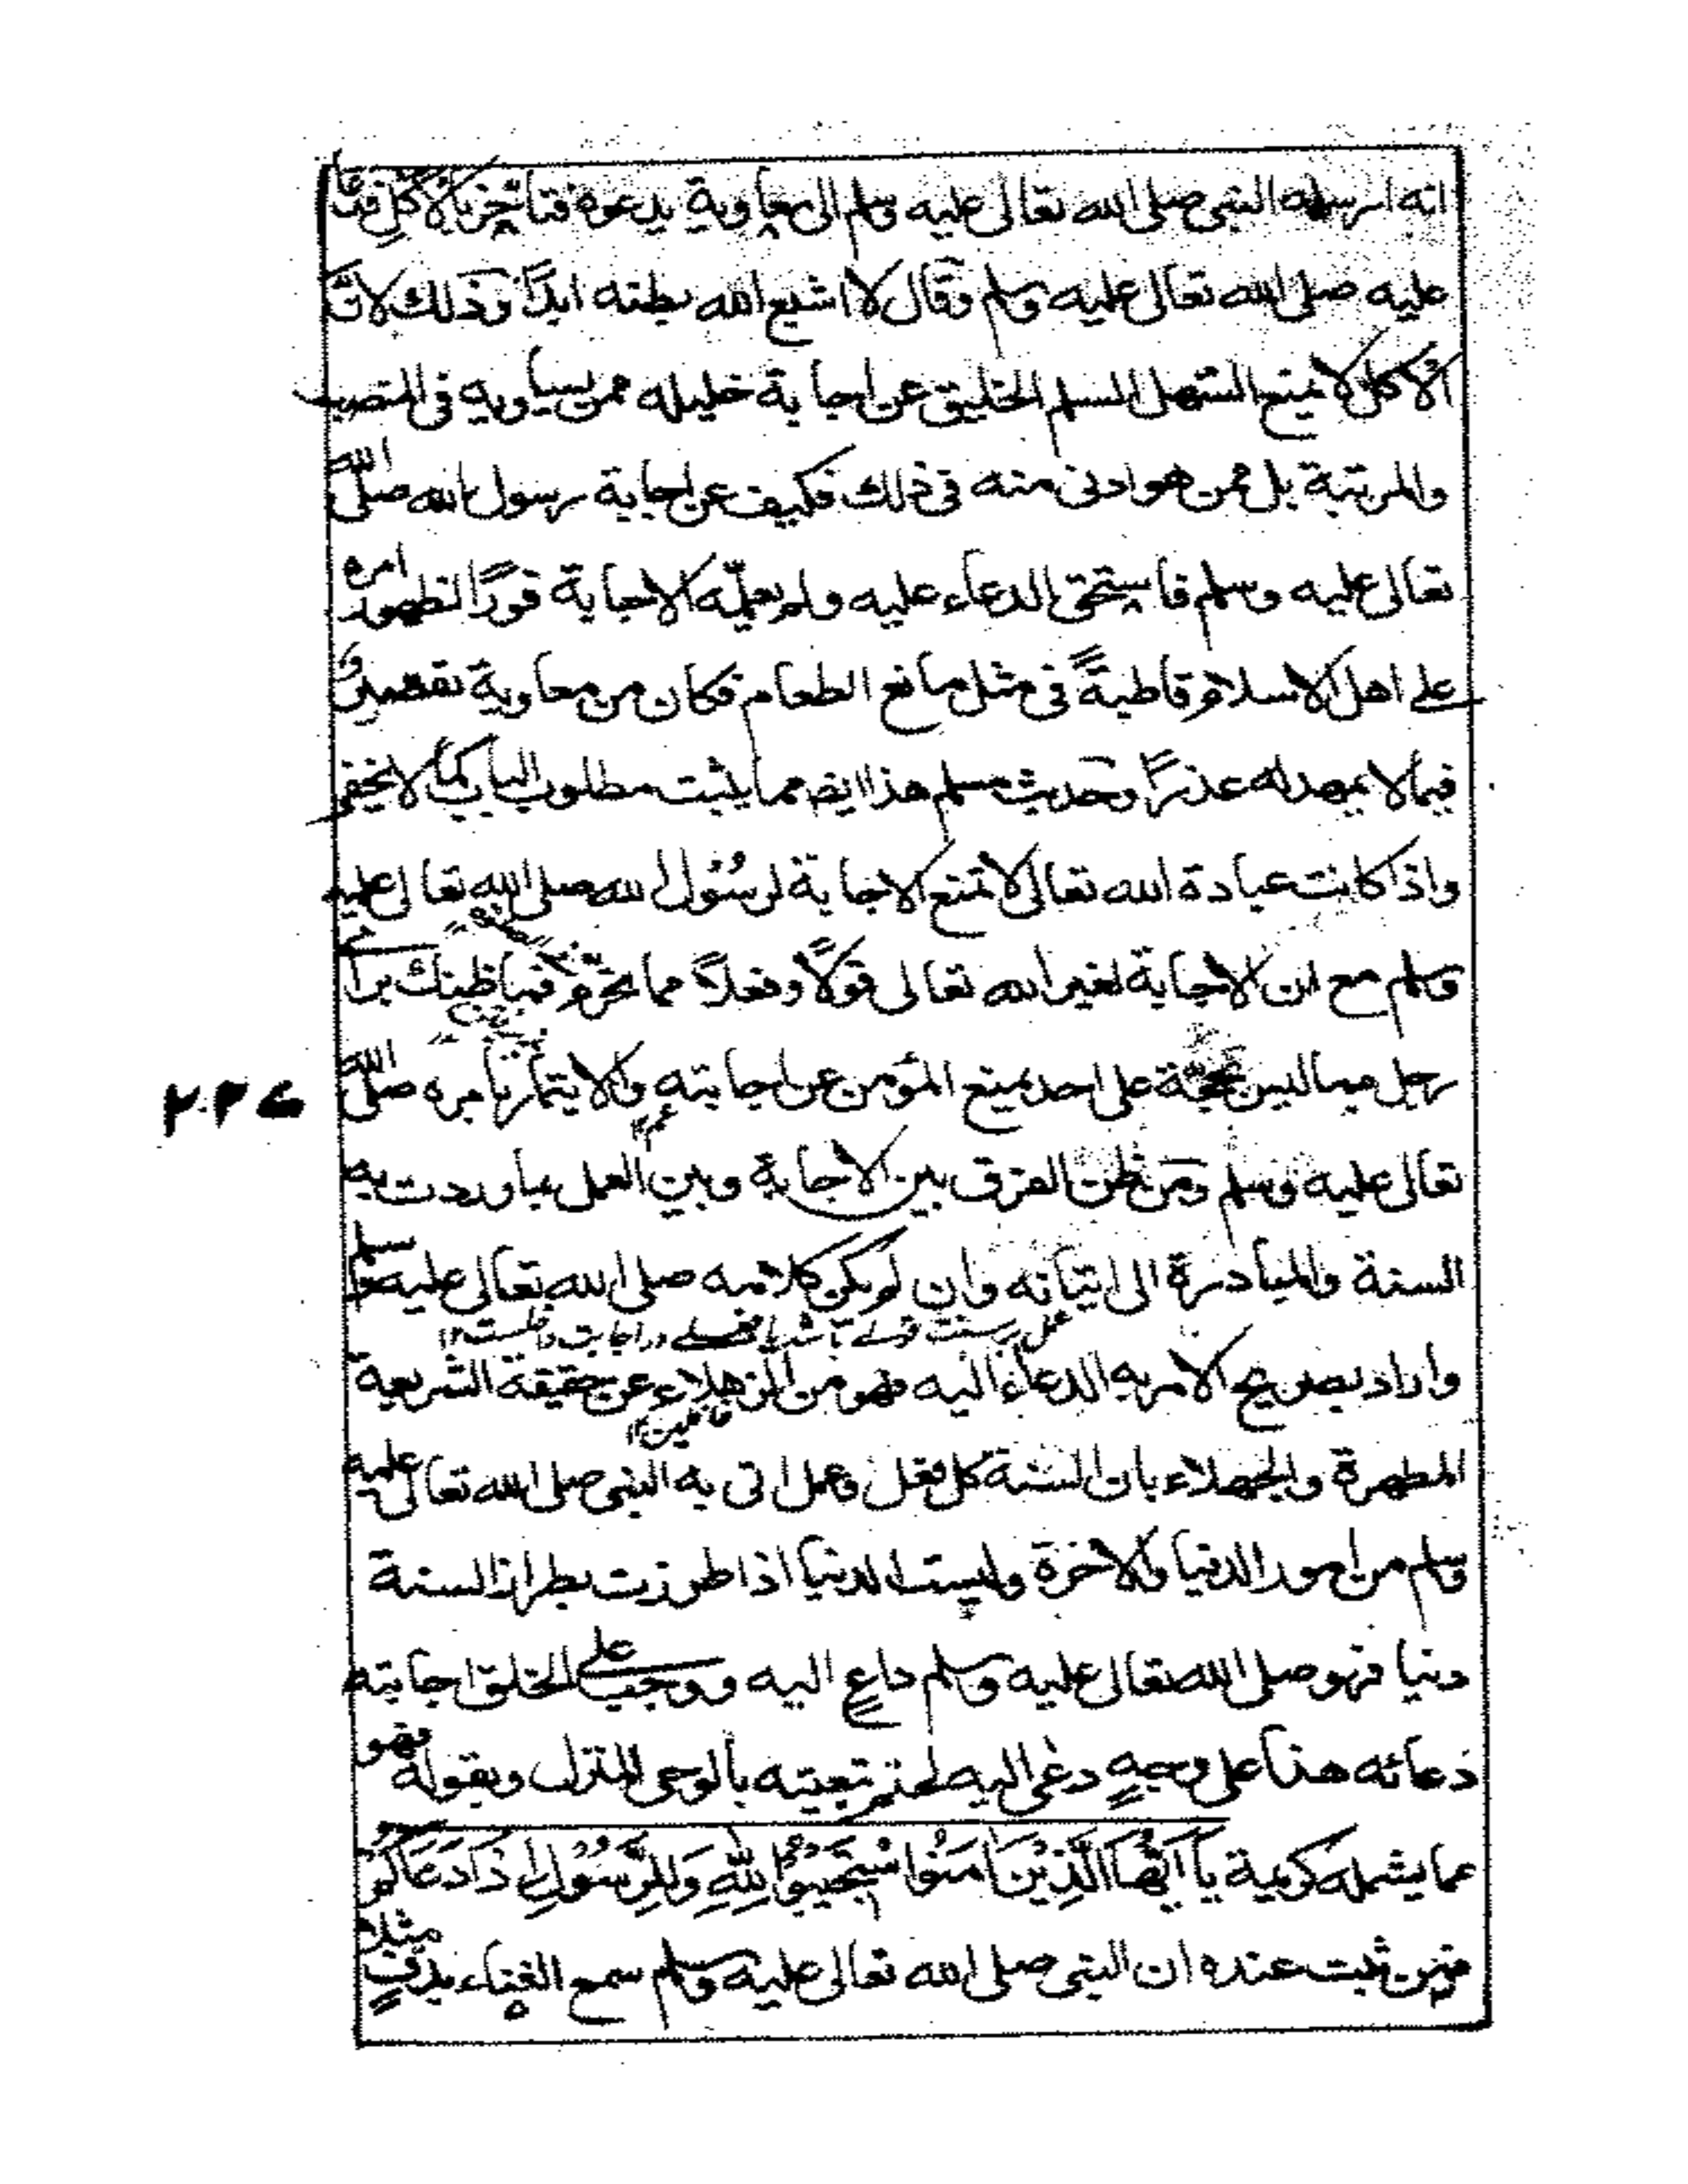 انه ارسله النبى صلى الله تعالى عليه وسلم الى معاوية يدعوه فتأخر بالاكل فدعا
عليه صلى الله تعالى عليه وسلم وقال لا اشبع الله بطنه ابدًا وذلك لان
الاكل لا يمنع المسلم الخليق عن اجابة خليله ممن يساويه فى المنصب
والمرتبة بل ممن هو ادنى منه فى ذلك فكيف عن اجابة رسول الله صلى الله
تعالى عليه وسلم فاستحق الدعاء عليه ولم الاجابة فورًا لظهور امره
على اهل الاسلام قاطبةً فى مثل مانع الطعام فكان من معاوية تقصير و
فيما لا يمهد له عذرًا وحديث مسلم هذا ايضا مما يثبت مطلوب الباب كما لا يخفى
واذا كانت عبادة الله تعالى لا تمنع الاجابة لرسُول الله صلى الله تعالى عليه
وسلم مع ان الاجابة لغير الله تعالى قولًا وفعلًا مما تحرّم فما ظنك براى
رجل مما ليس بحجة على احد يمنع المؤمن عن اجابته والايتمار بامره صلى الله
۲۲۶
تعالى عليه وسلم ومن ظن الفرق بين الاجابة وبين العمل بما وردت به
السنة والمبادرة الى اتيانه وان لم يكن كلامه صلى الله تعالى عليه وسلم
واراد بصريح الامر به الدعاء اليه فهو من الذهلاء عن حقيقة الشريعة
غافلين ۱۲
المطهرة والجهلاء بان السنة كل فعل وعمل اتى به النبى صلى الله تعالى عليه
وسلم من امور الدنيا والاخرة وليست الدنيا اذا طرزت بطراز السنة
دنيا فهو صلى الله تعالى عليه وسلم داعٍ اليه ووجب على الخلق اجابته
دعائه هذا على وجهٍ دعى اليه لحتم تبعيته بالوحى المنزل وبقوله فهو
مما يشمله كريمة يَا اَيُّهَا الَّذِيْنَ اٰمَنُوا اسْتَجِيْبُوْا لِلّٰهِ وَلِلرَّسُوْلِ اِذَا دَعَاكُمْ
فمن ثبت عنده ان النبى صلى الله تعالى عليه وسلم سمع الغناء بدفٍ مثلا